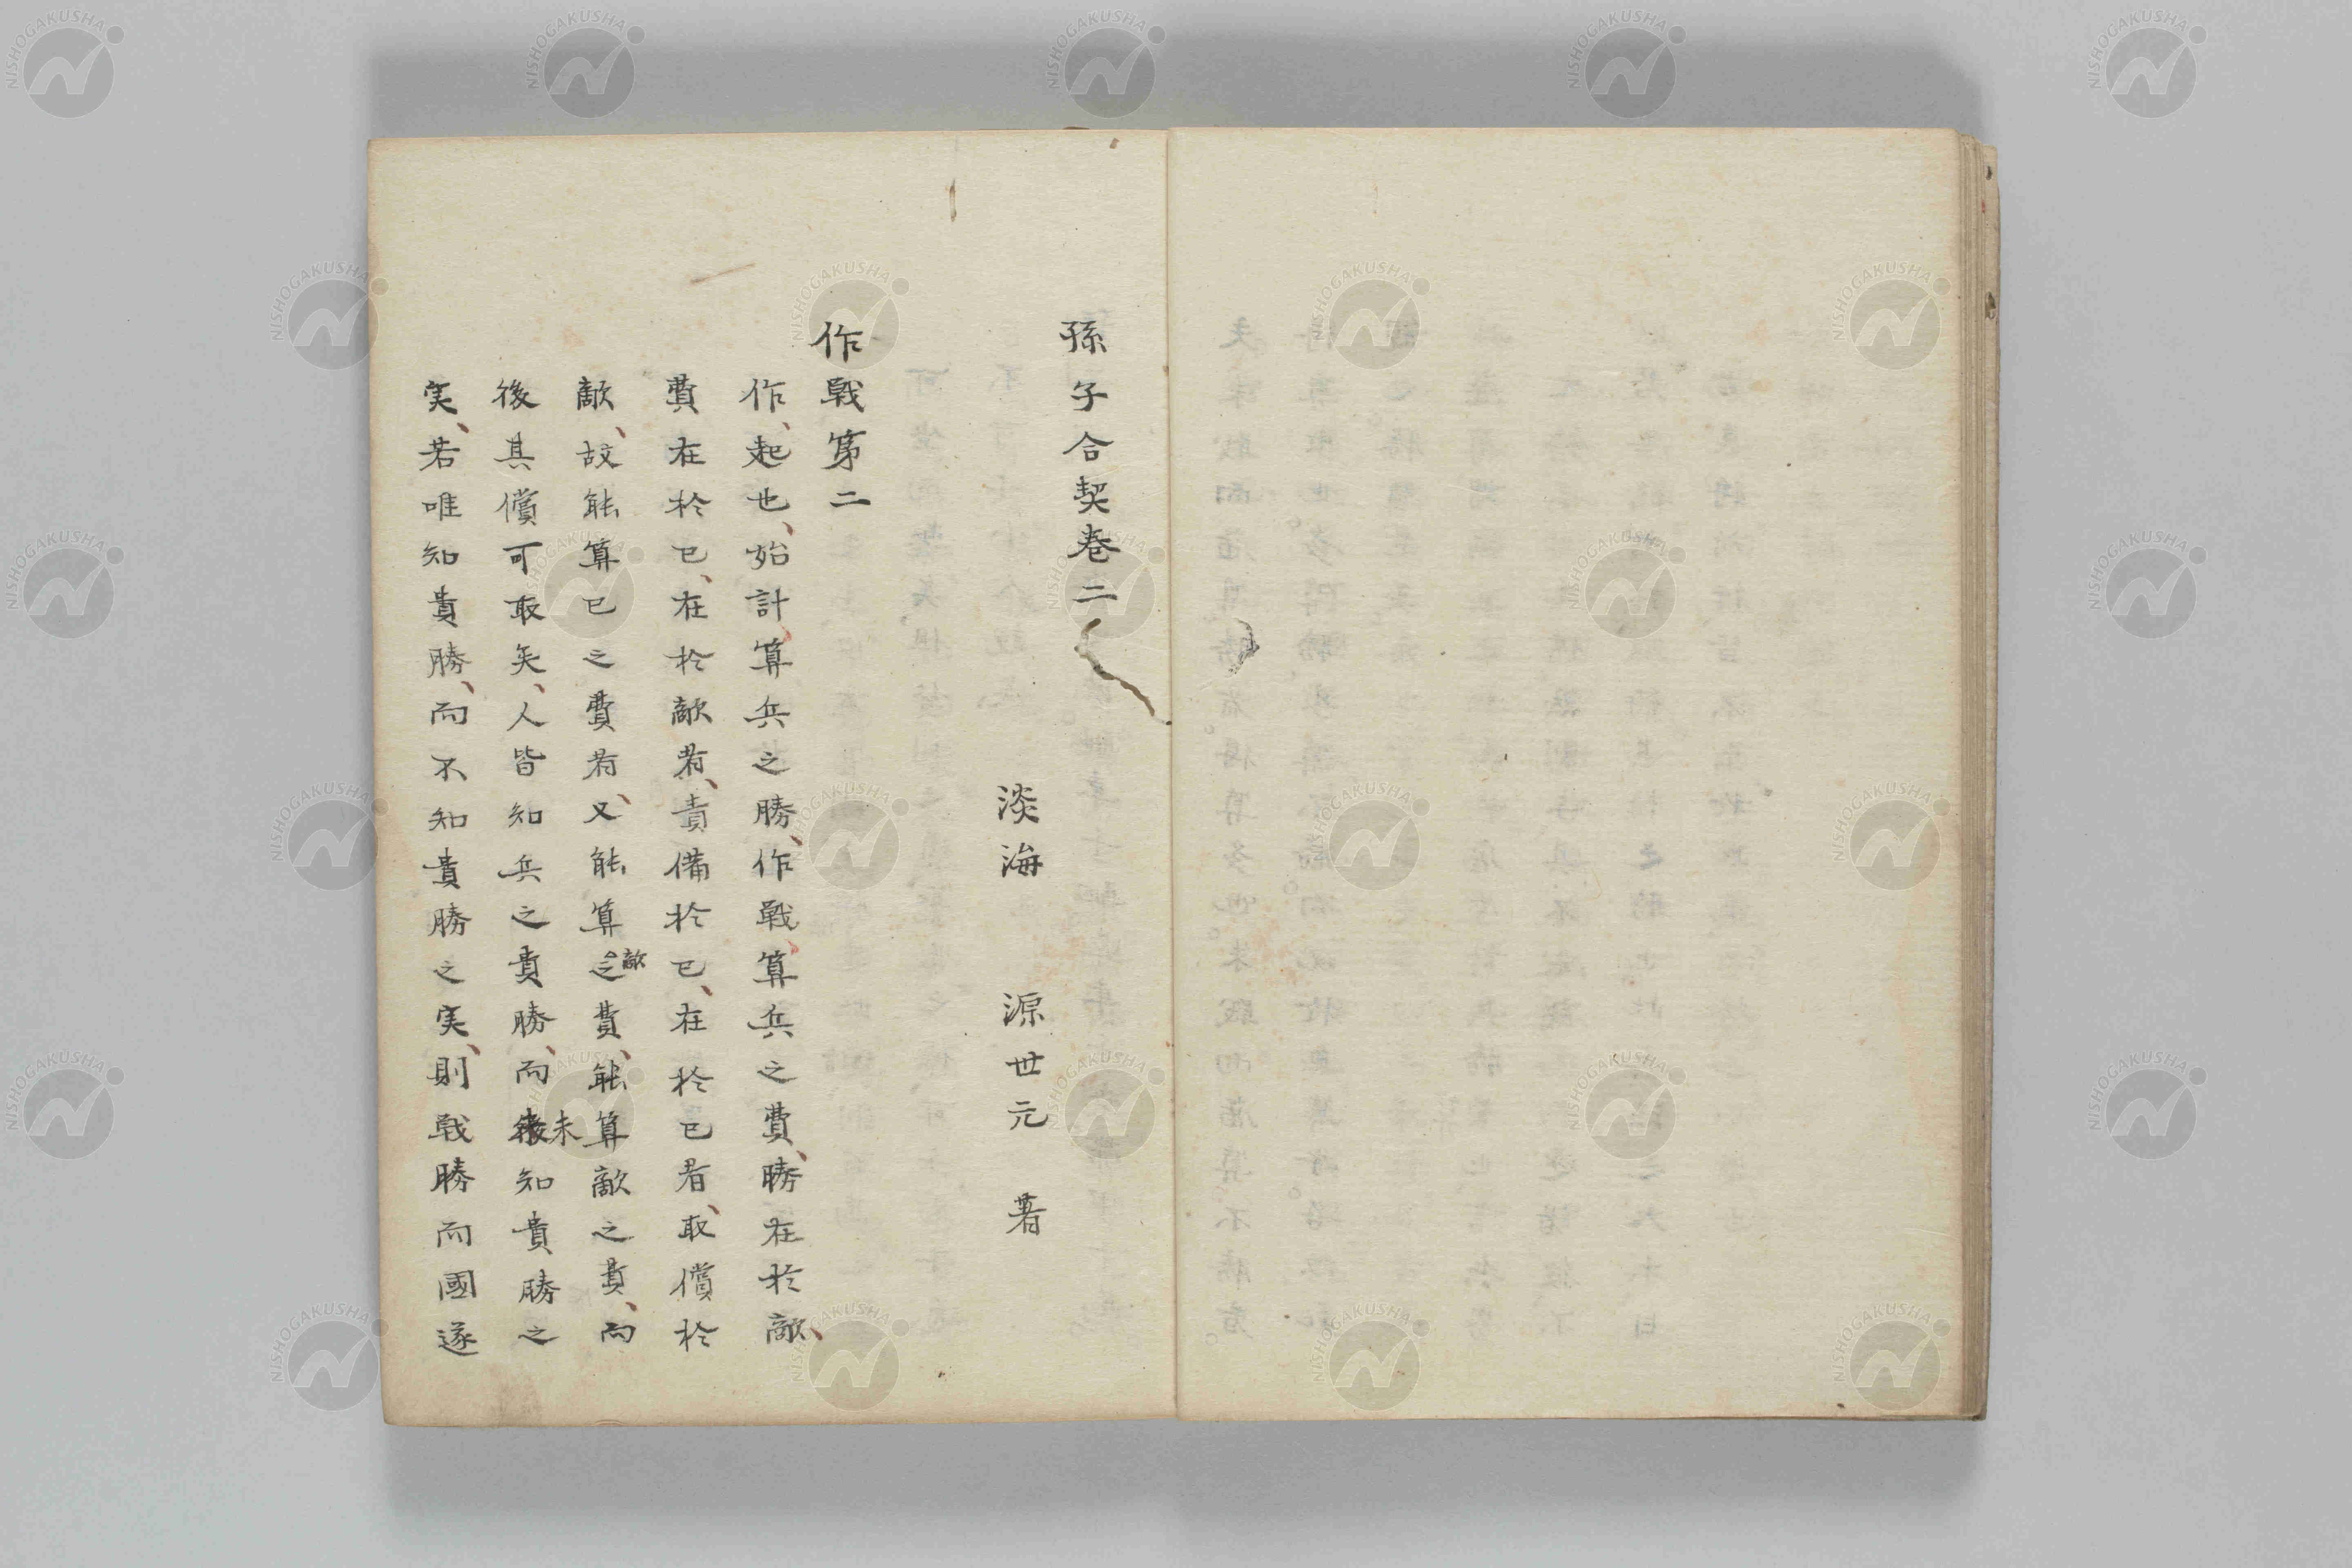 孫子合契巻二
淡海 源世元 著
作戰第二
作、起也、始計、算兵之勝、作戰、算兵之費、勝在於敵、
費在於已、在於敵者、責備於已、在於已者、取償於
敵、故能算已之費者、又能算敵之費、能算敵之費、而
後其償可取矣、人皆知兵之貴勝、而未知貴勝之
実、若唯知貴勝、而不知貴勝之実、則戰勝而國遂
NISHOGAKUSHA